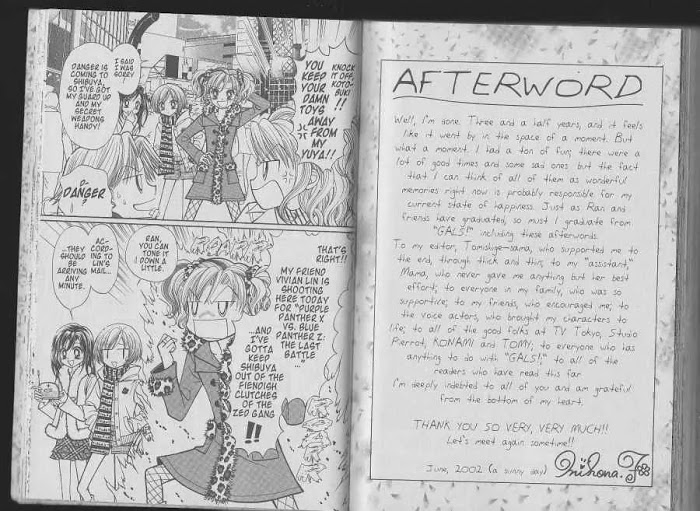 KNOCK
IT OFF,
KOTO-
BUKI!!
YOU
KEEP
YOUR
DAMN
TOYS
AWAY
FROM
MY
YUYA!!
I SAID
I WAS
SORRY
DANGER IS
COMING TO
SHIBUYA,
SO I'VE GOT
MY GUARD UP
AND MY
SECRET
WEAPONS
HANDY!
D-
DANGER?
THAT'S
RIGHT!!
MY FRIEND
VIVIAN LIN IS
SHOOTING
HERE TODAY
FOR "PURPLE
PANTHER X
VS. BLUE
PANTHER Z:
THE LAST
BATTLE
"...
...AND
I'VE
GOTTA
KEEP
SHIBUYA
OUT OF THE
FIENDISH
CLUTCHES
OF THE
ZED GANG
!!
RAN,
YOU CAN
TONE IT
DOWN A
LITTLE.
AC-
CORD-
ING TO
LIN'S
MAIL...
...THEY
SHOULD
BE
ARRIVING
ANY
MINUTE.
AFTERWORD
Well, I'm done. Three and a half years, and it feels
like it went by in the space of a moment. But
what a moment. I had a ton of fun; there were a
lot of good times and some sad ones but the fact
that I can think of all of them as wonderful
memories right now is probably responsible for my
current state of happiness. Just as Ran and
friends have graduated, so must I graduate from
"GALS!" including these afterwords.
To my editor, Tomishige-sama, who supported me to
the end, through thick and thin; to my "assistant,"
Mama, who never gave me anything but her best
effort; to everyone in my family, who was so
supportive; to my friends, who encouraged me; to
the voice actors, who brought my characters to
life; to all of the good folks at TV Tokyo, Studio
Pierrot, KONAMI and TOMY; to everyone who has
anything to do with "GALS!;" to all of the
readers who have read this far
I'm deeply indebted to all of you and am grateful
from the bottom of my heart.
THANK YOU SO VERY, VERY MUCH!!
Let's meet again sometime!!
June, 2002 (a sunny day) Mihona. F